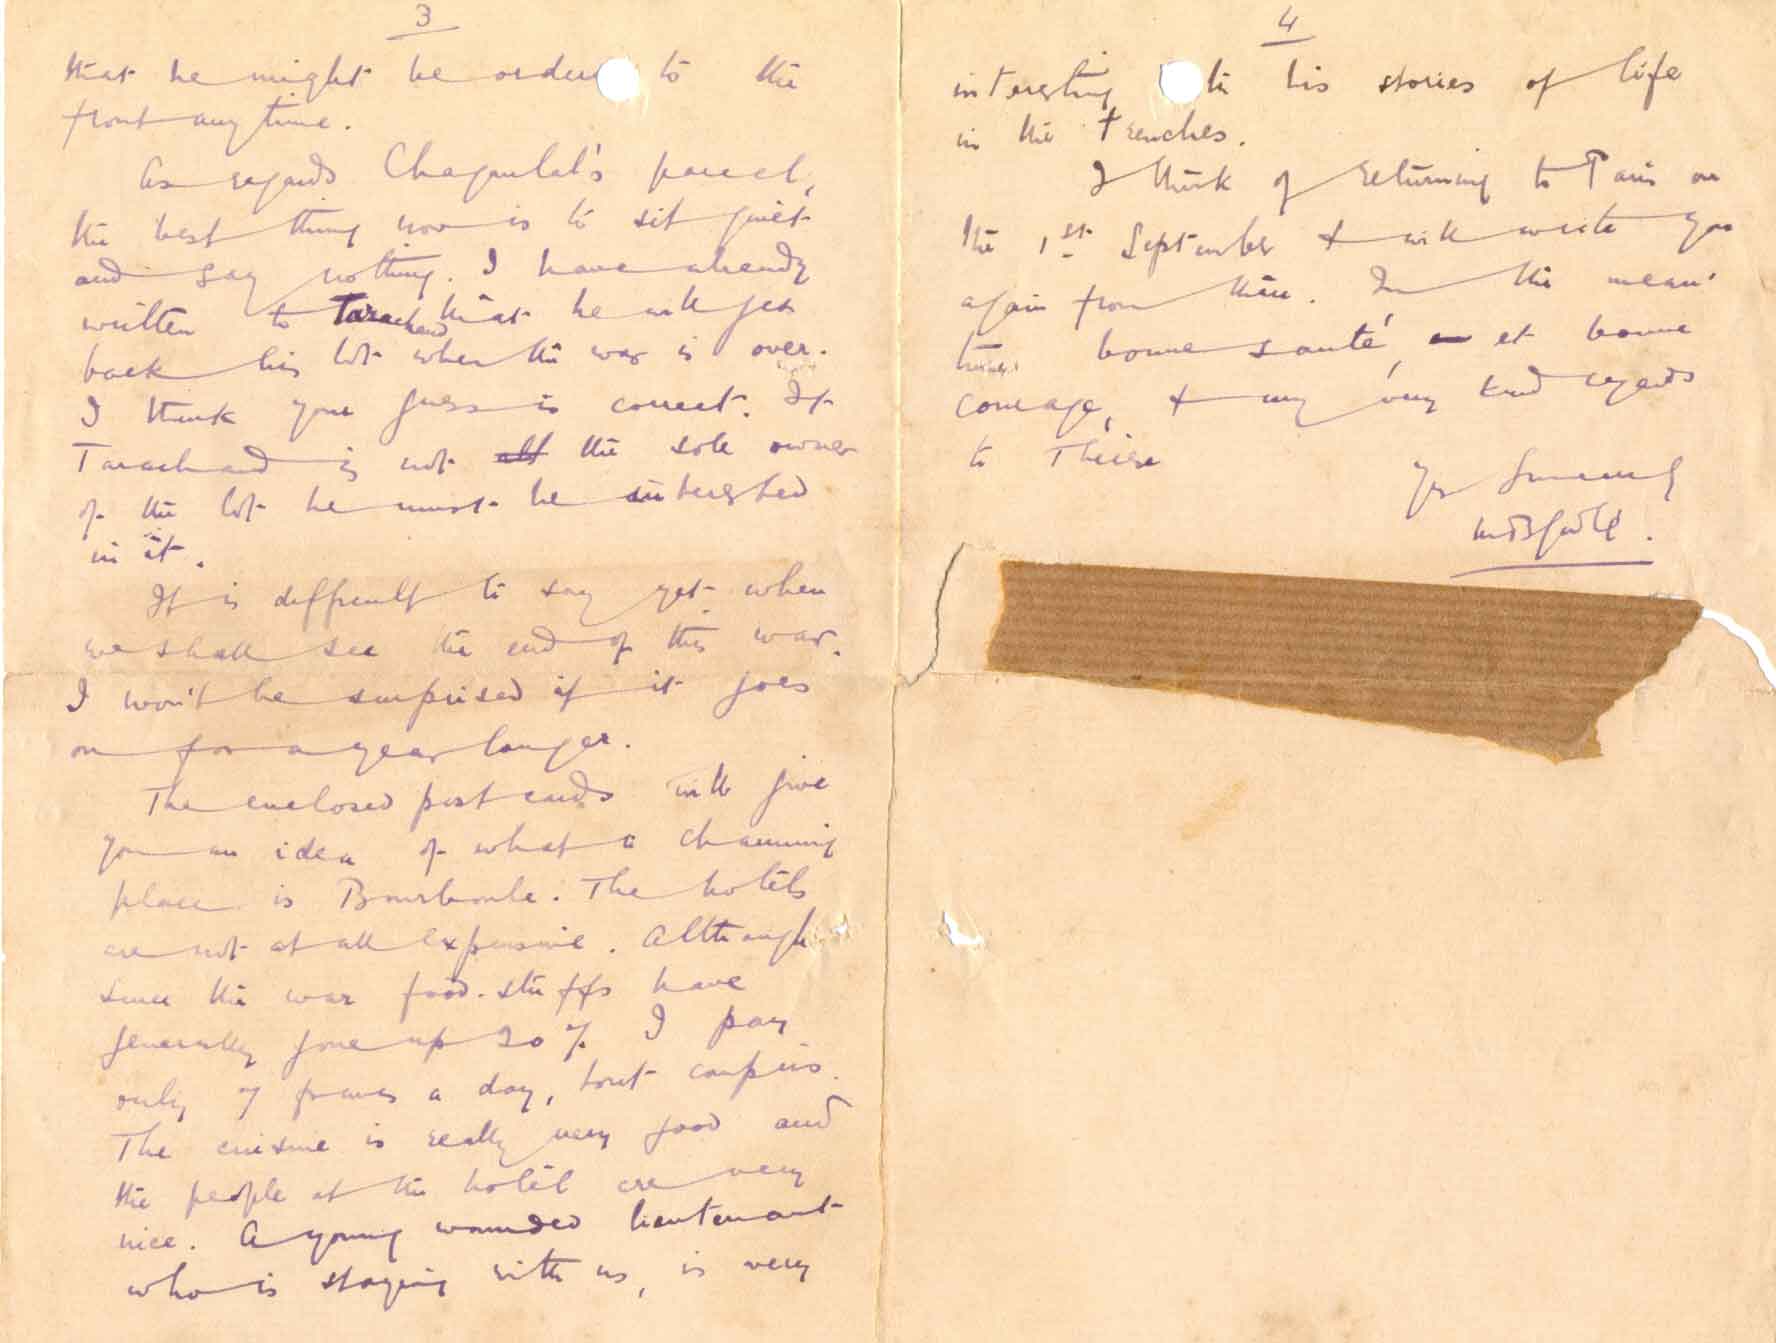 3
that he might be order to the
front any time.
As regards Chaganlal's parcel,
the best thing now is to sit quiet
and say nothing. I have already
written to Tarachand that he will get
back his lot when the war is over.
I think your guess is correct. If
Tarachand is not the sole owner
of the lot he must be interested
in it.
It is difficult to say yet when
we shall see the end of this war.
I won't be surprised if it goes
on for a year longer.
The enclosed post cards will give
you an idea of what a charming
place is Bourboule. The hotels
are not at all expensive. Although
since the war food-stuffs have
generally gone up 20% I pay
only 7 francs a day, tout compris.
The cuisine is really very good and
the people at the hotel are very
nice. A young wounded lieutenant
who is staying with us, is very
4
interesting his stories of life
in the trenches.
I think of returning to Paris on
the 1st September & will write you
again from there. In the mean-
time bonne santé, et bonne
courage, & my very kind regards
to Thérèse
Yrs Sincerely